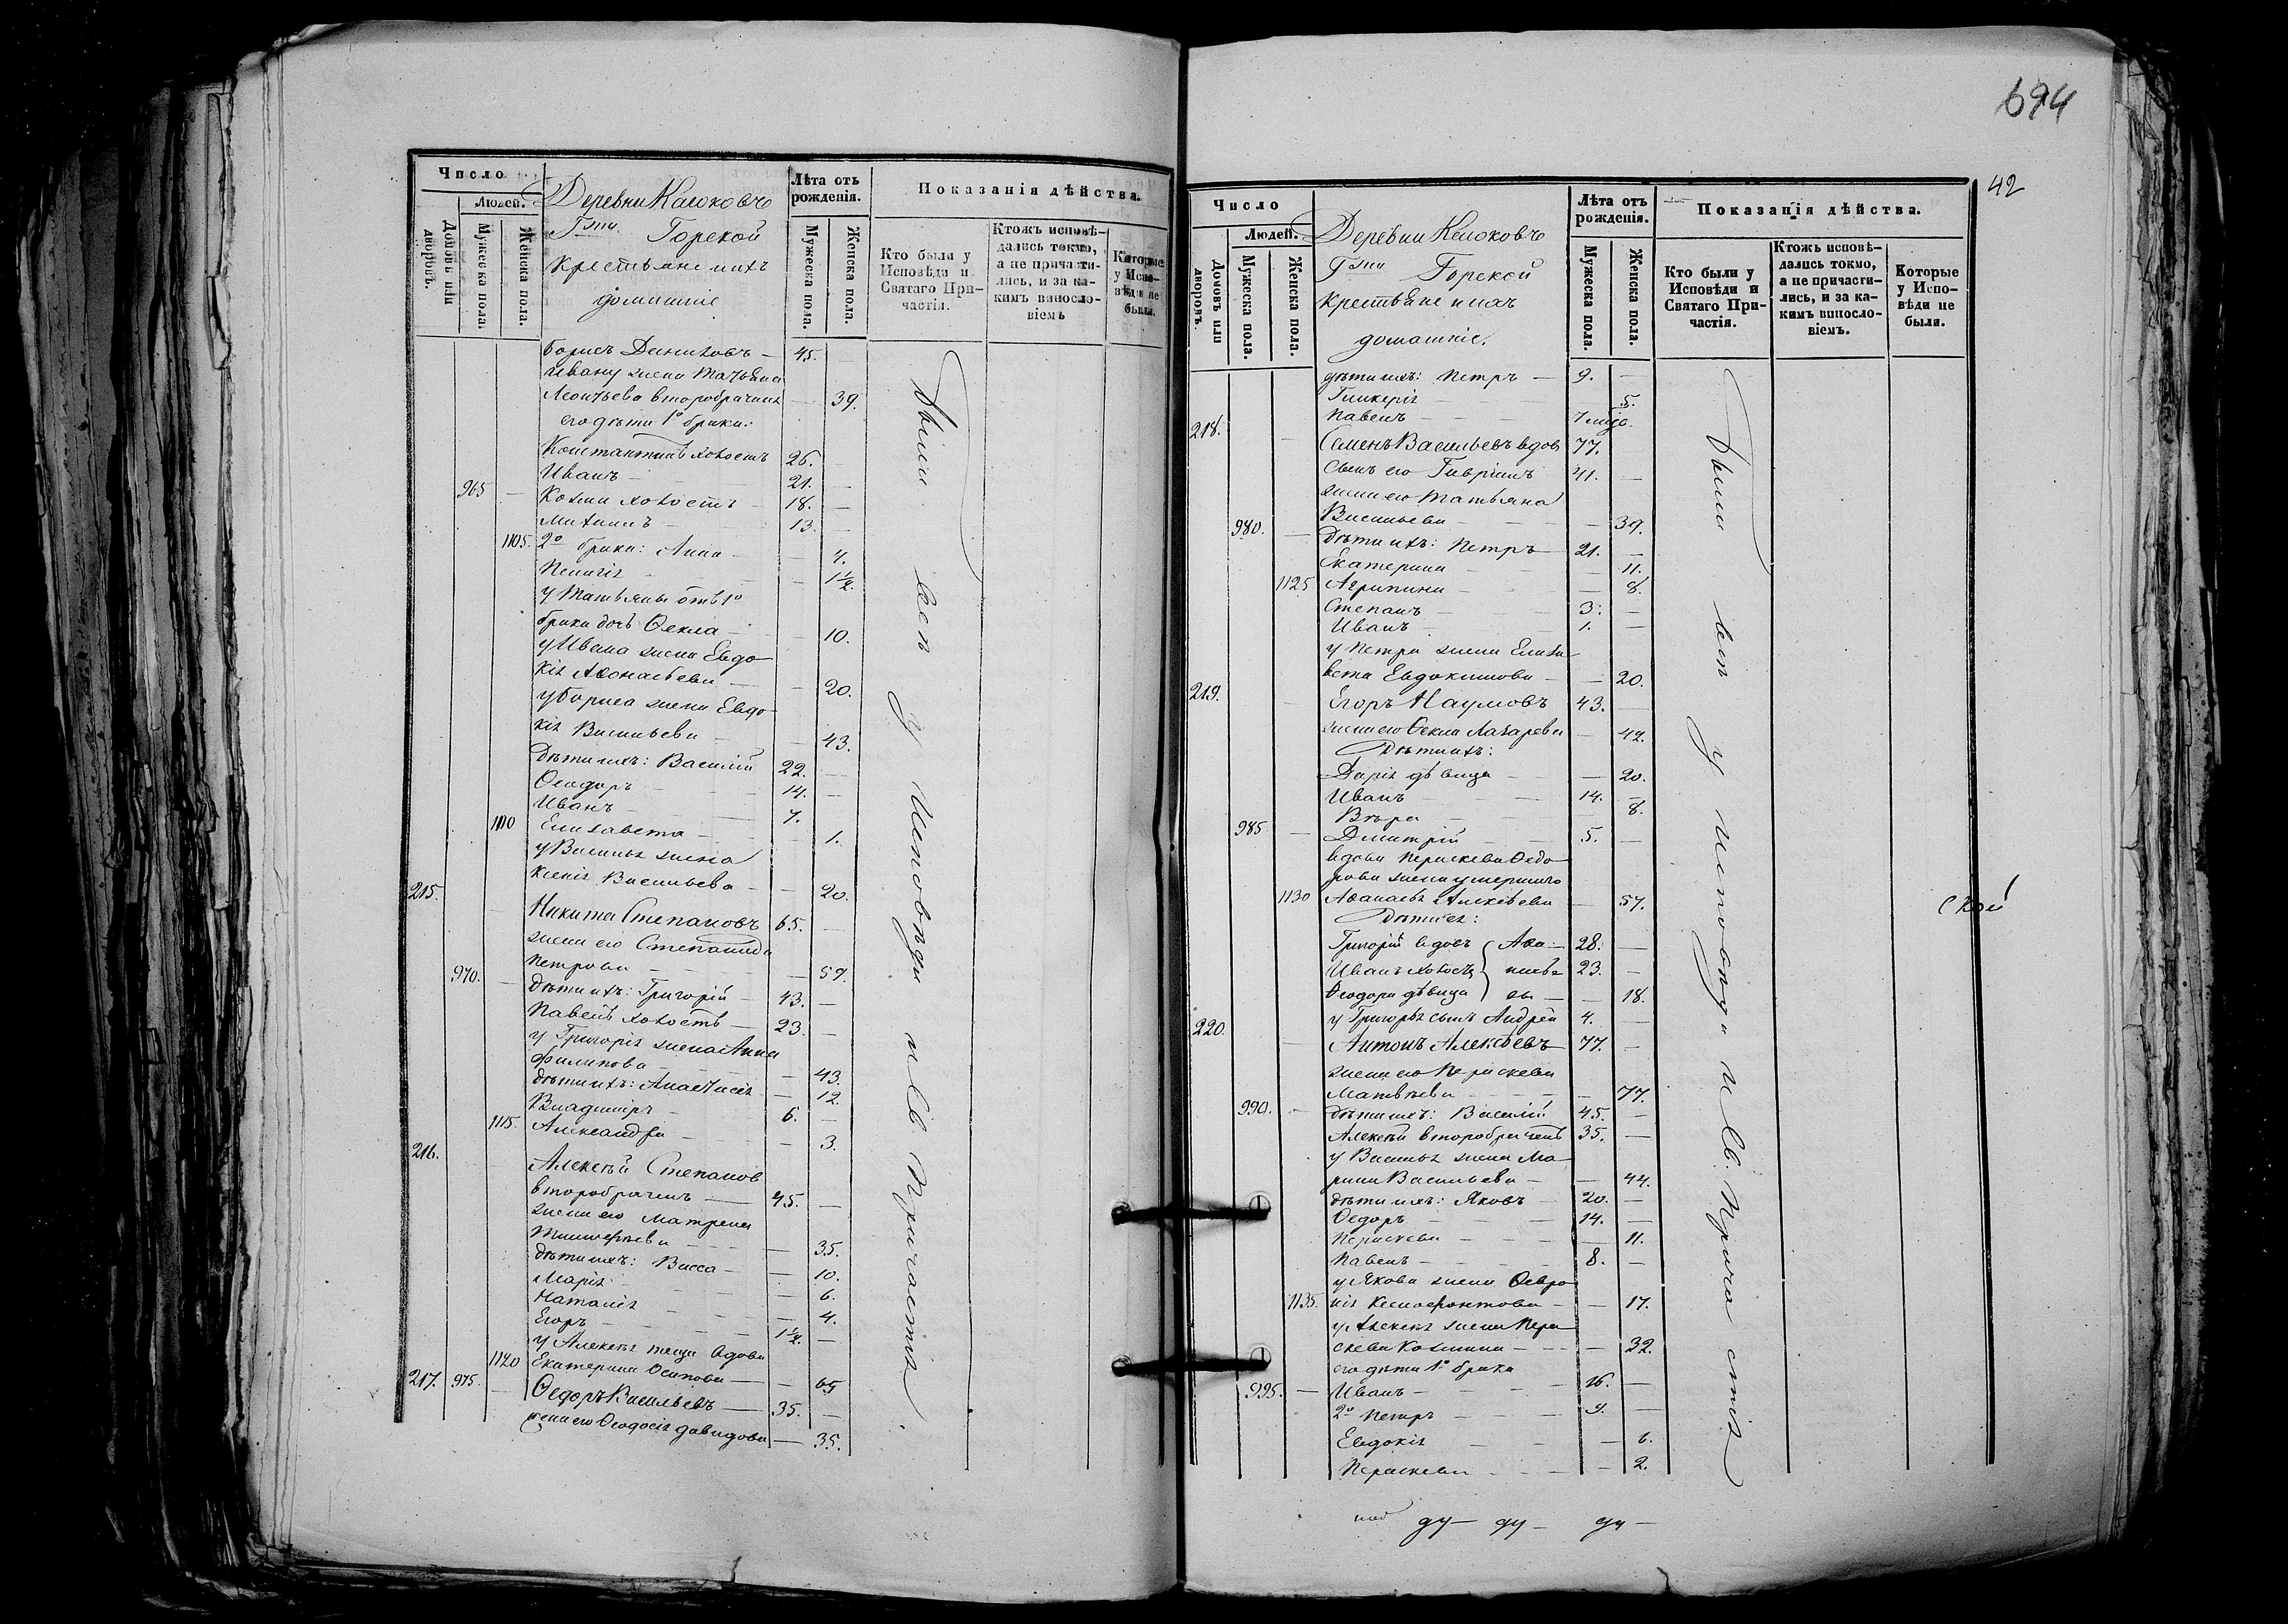 Число
Людей.
Домовъ или дворовъ.
Мужеска пола.
Женска пола.
Деревни
Г-жи Горской
крестьяне и ихъ
домашніе
Лѣта отъ рожденія.
Мужеска пола.
Женска пола.
Показанія дѣйства.
Кто были у Исповѣди и Святаго Причастія.
Ктожъ исповѣдались токмо, а не причастились, и за какимъ винословіемъ
Которые у Исповѣди не были.
Борисъ Даниловъ — 45. —
Ивану жена Татьяна
Леонтьева второбрачна — 39.
его дѣти 1о брака:
Константинъ холостъ 26. —
Иванъ — 21. —
965 — Козма холостъ — 18. —
Михаилъ — 13. —
1105. 2о брака: Анна — 4.
Пелагія — 1½.
у Татьяны отъ 1о
брака дочь Ѳекла — 10.
у Ивана жена Евдо
кія Аѳонасьева — 20.
у Бориса жена Евдо
кія Васильева — 43.
Дѣти ихъ: Василій 22. —
Ѳеодоръ — 14. —
Иванъ — 7.
1110 Елизавета — 1.
у Василья жена
Ксенія Васильева — 20.
215. Никита Степановъ 65. —
жена его Степанида
Петрова — 59.
970. — Дѣти ихъ: Григорій — 43. —
Павелъ холостъ — 23. —
у Григорія жена Анна
Филипова — 43.
дѣти ихъ: Анастасія — 12.
Владиміръ — 6. —
1115. Александра — 3.
216. Алексѣй Степановъ
второбраченъ — 45. —
жена его Матрена
Тимоѳеева — 35.
дѣти ихъ: Васса — 10.
Марія — 6.
Наталія — 4.
Егоръ — 1½. —
у Алексѣя теща вдова
1120 Екатерина Осипова — 65
217. 975. — Ѳедоръ Васильевъ — 35. —
жена его Ѳеодосія Давидова — 35.
Были всѣ у Исповѣди и Св. Причастія.
694
42
Число
Людей.
Домовъ или дворовъ.
Мужеска пола.
Женска пола.
Деревни
Г-жи Горской
крестьяне и ихъ
домашніе.
Лѣта отъ рожденія.
Мужеска пола.
Женска пола.
Показанія дѣйства.
Кто были у Исповѣди и Святаго Причастія.
Ктожъ исповѣдались токмо, а не причастились, и за какимъ винословіемъ.
Которые у Исповѣди не были.
дѣти ихъ: Петръ — 9. —
Гликерія — 5.
Павелъ — 7 мѣс.
218. — Семенъ Васильевъ вдов 77.
Сынъ его Гавріилъ 41. —
жена его Татьяна
Васильева — 39.
980. — Дѣти ихъ: Петръ — 21. —
Екатерина — 11.
1125 Агрипина — 8.
Степанъ — 3. —
Иванъ — 1. —
у Петра жена Елиза
вета Евдокимова — 20.
219. Егоръ Наумовъ 43. —
жена его Ѳекла Лазарева — 42.
Дѣти ихъ:
Дарія дѣвица — 20.
Иванъ — 14. —
Вѣра — 8.
985 — Дмитрій — 5. —
вдова Параскева Ѳедо
рова жена умершаго
1130 Аѳанасья Алексѣева — 57.
Дѣти ея:
Григорій вдовъ } Аѳа 28. —
Иванъ холостъ } насье 23. —
Ѳеодора дѣвица } вы — 18.
у Григорья сынъ Андрей 4. —
220. Антонъ Алексѣевъ 77. —
жена его Параскева
Матвѣева — 77.
990. — дѣти ихъ: Василій 45. —
Алексѣй второбраченъ 35. —
у Василья жена Ма
рина Васильева — 44.
дѣти ихъ: Яковъ 20. —
Ѳедоръ — 14. —
Параскева — 11.
Павелъ — 8. —
у Якова жена Ѳевро
1135. нія Ксенофонтова — 17.
у Алексѣя жена Пара
скева Козмина — 32.
его дѣти 1о брака
995. — Иванъ — 16. —
2о Петръ — 9. —
Евдокія — 6.
Параскева — 2.
Были всѣ у исповѣди и Св. Причастія
ской